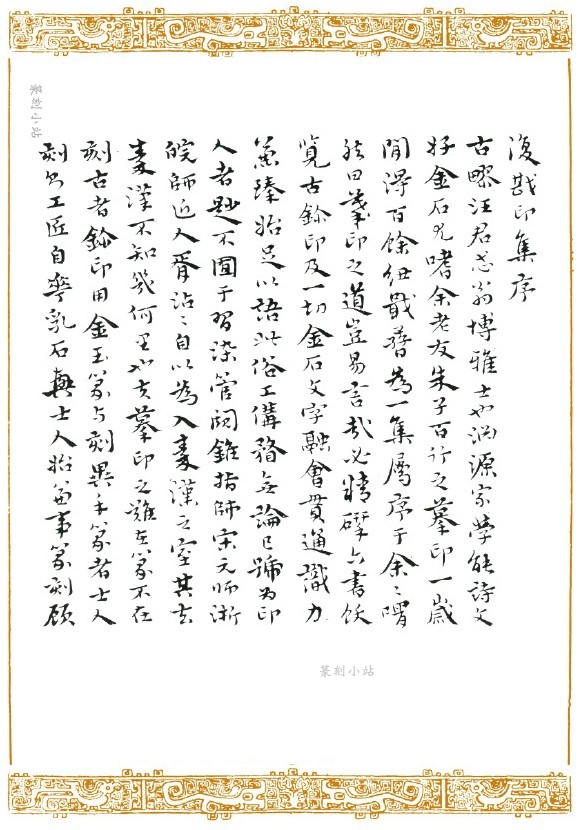 復戡印集序
古鄮汪君忞翁博雅士也淵源家學能詩文
好金石尤嗜余老友朱子百行之摹印一歲
間得百餘紐戢孴為一集屬序于余〻喟
然曰篆印之道豈易言哉必精研六書飫
覽古鉨印及一切金石文字融會貫通識力
兼臻始足以語此俗工傋瞀無論已號為印
人者尟不囿于習染管闚錐指師宋元師浙
皖師近人胥沾〻自以為入秦漢之室其去
秦漢不知幾何里也夫摹印之難在篆不在
刻古者鉨印用金玉篆与刻異手篆者士人
刻工匠自華乳石興士人始兼事篆刻顧
篆刻小站
篆刻小站